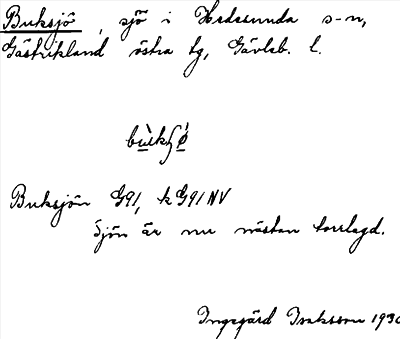 Buksjö, sjö i Hedesunda s-n,
Gästrikland östra tg, Gävleb. l.
Buksjön G91, k G91 NV
Sjön är nu nästan torrlagd.
Ingegärd Isaksson 1930